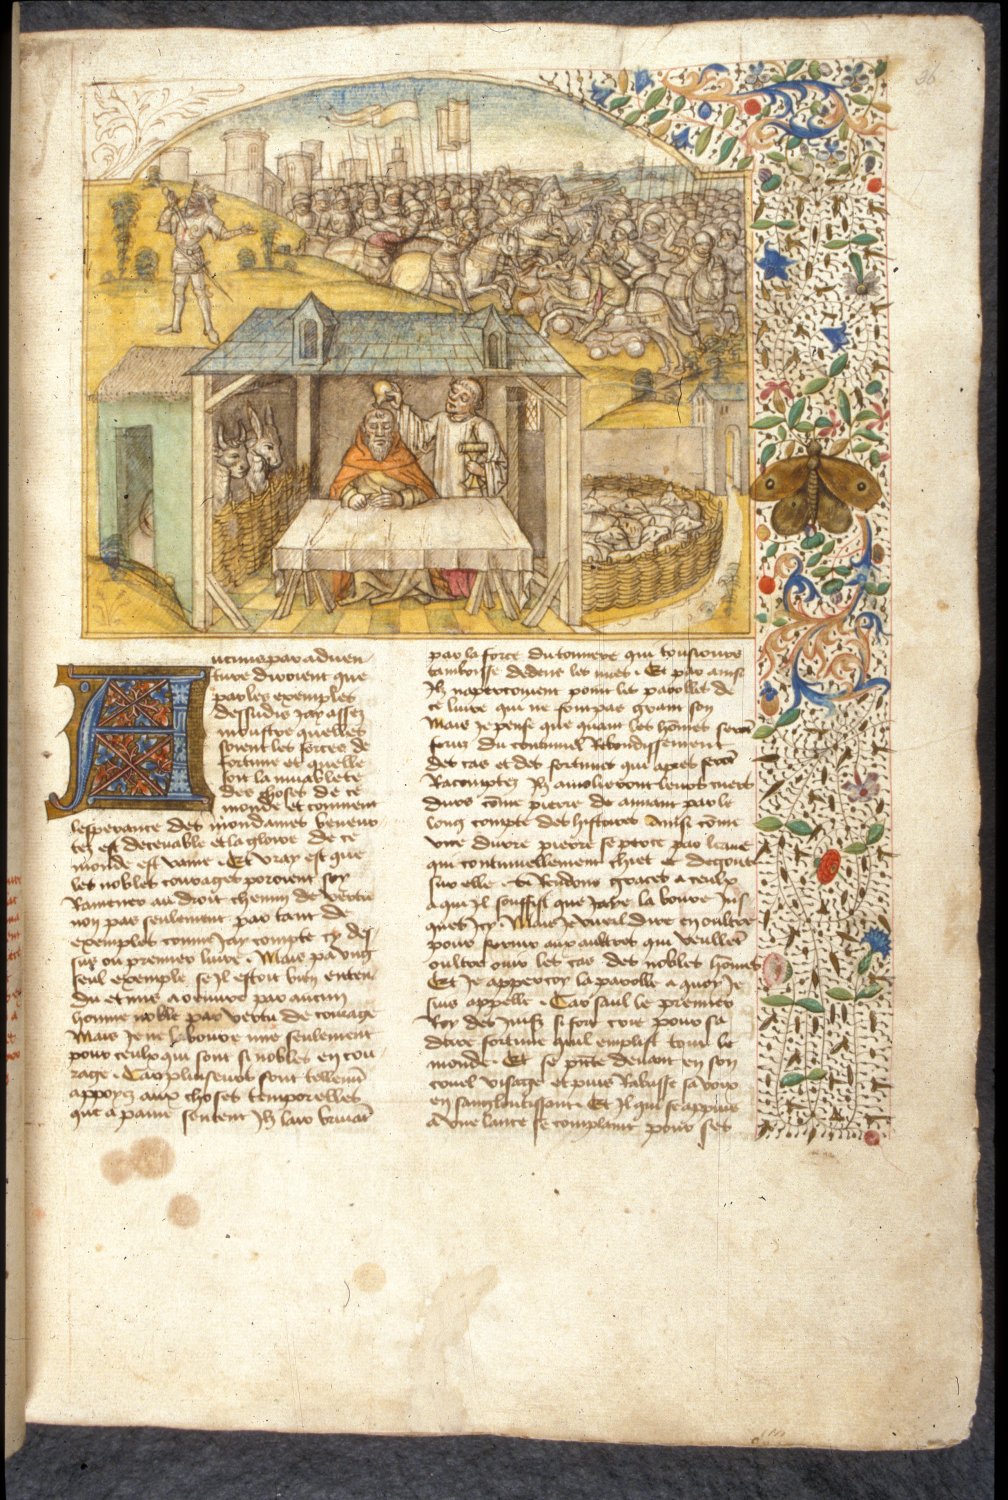 36
Aucuns par adven
ture diroient que
par les exemples
dessusdis jay assez
monstre quelles
soient les forces de
fortune et quelle
soit la muablete
des choses de ce
monde et comment
lesperance des mondaines
est decevable et la gloire de ce
monde est vaine . Et vray est que
les nobles courages porroient soy
Ramener au droit chemin de vertu
non pas seulement par tant de
exemples comme jay compte cy des
sus ou premier livre . Mais par ung
seul exemple se il estoit bien enten
du et mis a oeuvre par aucun
homme noble par vertu de courage
Mais je ne laboure mie seulement
pour ceulx qui sont si nobles en cou
rage . Car pluiseurs sont tellement
appoyez aux choses temporelles
que a paine sentent ilz
par la force du tonnoire qui tousjours
dedens les nues . Et par ainsi
ilz napercoivent point les parolles de
ce livre qui ne font pas grant son
Mais je pense que quant les hommes seront
du continuel Rebondissement
des cas et des fortunes qui apres seront
Racomptez ilz amolieront leurs cuers
durs come pierre de aymant par le
long compte des histoires Ainsi come
une dure pierre se perce par leaue
qui continuellement chiet et degoute
sur elle . Si Rendons graces a ceulx
a qui il souffist que jaye laboure jus
ques icy . Mais je vueil dire en oultre
pour aux aultres qui veullent
oultre ouir les cas des nobles hommes
Et je appercoy la parolle a quoy je
suis appelle . Car saul le premier
Roy des juifz si fort crie pour sa
dure fortune quil emplist tout le
monde . Et se presente devant en son
cruel visage et puis Rabaisse sa voix
en sangloutissant . Et il qui se appuie
a une lance se complaint pour ses